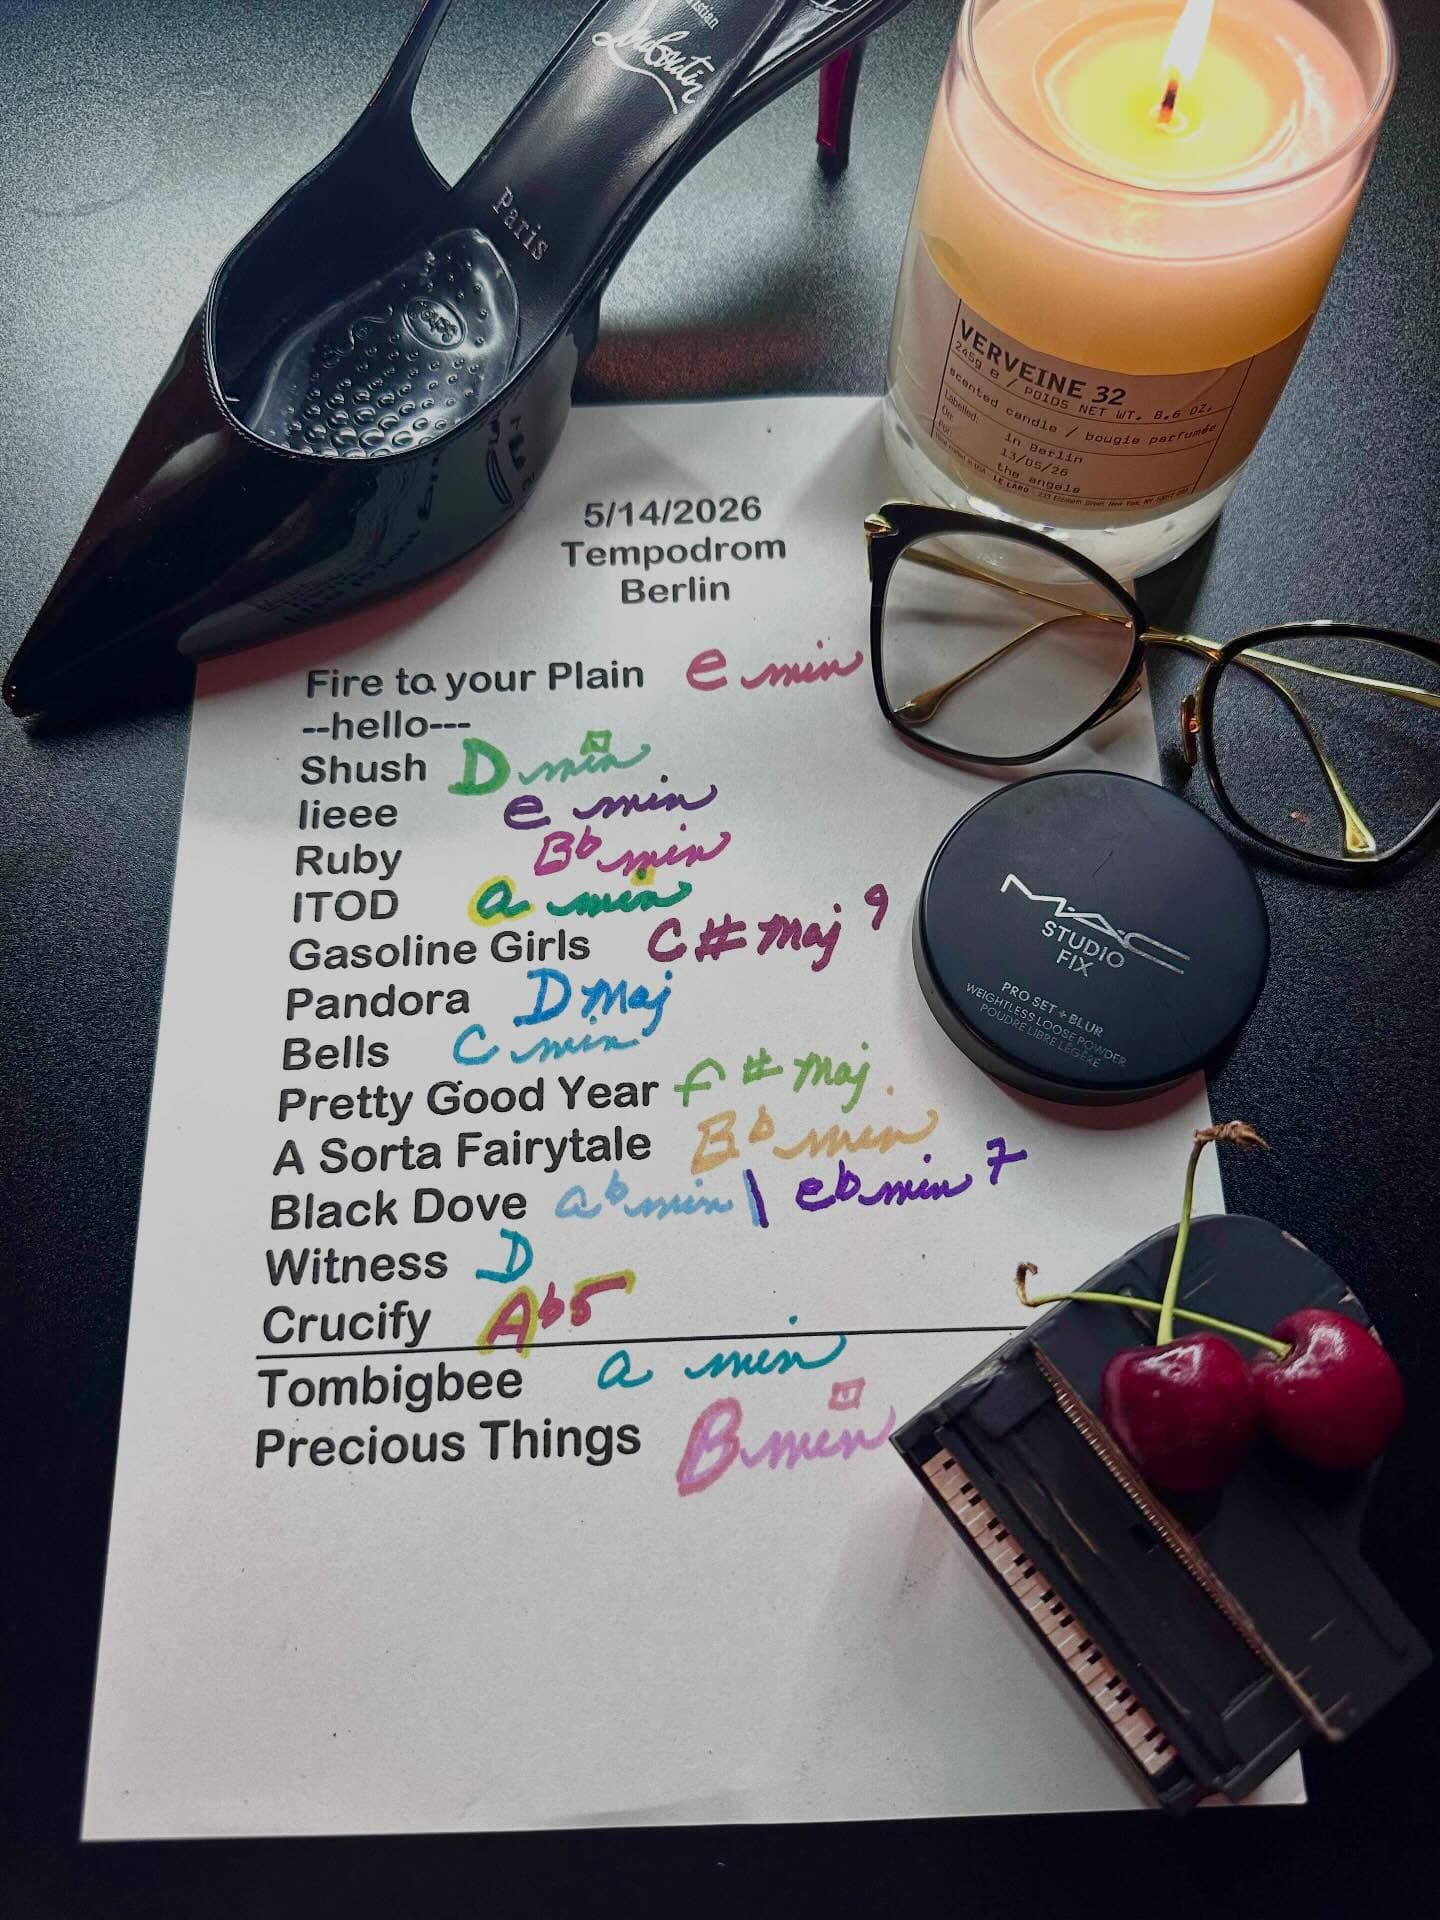 Christian
Louboutin
Paris
VERVEINE 32
245g e / POIDS NET WT. 8.6 OZ.
scented candle / bougie parfumée
Labelled: in Berlin
On: 13/05/26
For: the angels
LE LABO - 233 Elizabeth Street New York, NY
5/14/2026
Tempodrom
Berlin
Fire to your Plain e min
--hello---
Shush D min
Iieee e min
Ruby Bb min
ITOD a min
Gasoline Girls C# Maj 9
Pandora D Maj
Bells C min
Pretty Good Year F# Maj
A Sorta Fairytale Bb min
Black Dove ab min | eb min 7
Witness D
Crucify Ab5
Tombigbee a min
Precious Things B min
MAC
STUDIO
FIX
PRO SET + BLUR
WEIGHTLESS LOOSE POWDER
POUDRE LIBRE LÉGÈRE